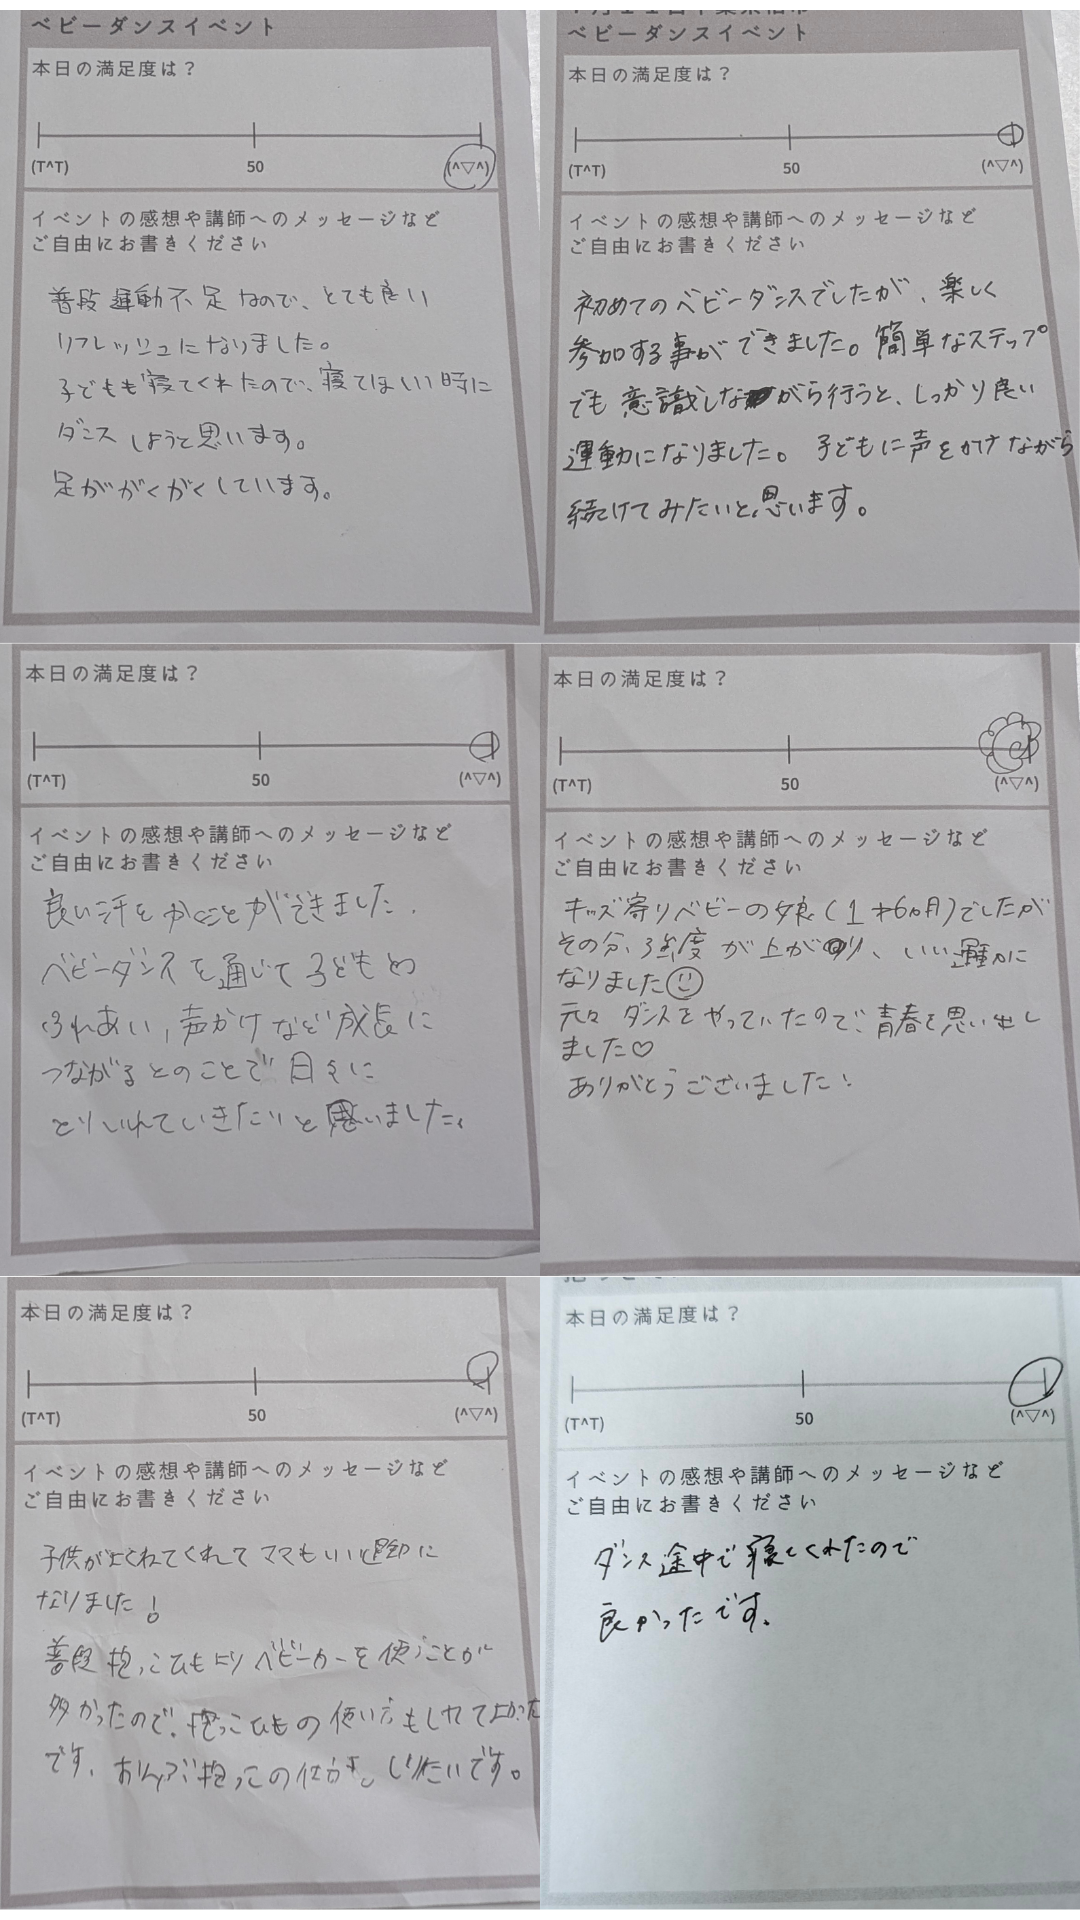 ベビーダンスイベント
本日の満足度は？
(T^T) 50 (^▽^)
イベントの感想や講師へのメッセージなど
ご自由にお書きください
普段運動不足なので、とても良い
リフレッシュになりました。
子どもも寝てくれたので、寝てほしい時に
ダンスしようと思います。
足ががくがくしています。
ベビーダンスイベント
本日の満足度は？
(T^T) 50 (^▽^)
イベントの感想や講師へのメッセージなど
ご自由にお書きください
初めてのベビーダンスでしたが、楽しく
参加する事ができました。簡単なステップ
でも意識しながら行うと、しっかり良い
運動になりました。子どもに声をかけながら
続けてみたいと思います。
本日の満足度は？
(T^T) 50 (^▽^)
イベントの感想や講師へのメッセージなど
ご自由にお書きください
良い汗をかくことができました.
ベビーダンスを通じて子どもとの
ふれあい,声かけなど成長に
つながるとのことで日々に
とりいれていきたいと思いました。
本日の満足度は？
(T^T) 50 (^▽^)
イベントの感想や講師へのメッセージなど
ご自由にお書きください
キッズ寄りベビーの娘(1才6ヵ月)でしたが
その分、強度が上がり、いい運動に
なりました☺
元々ダンスをやっていたので、青春を思い出し
ました♡
ありがとうございました！
本日の満足度は？
(T^T) 50 (^▽^)
イベントの感想や講師へのメッセージなど
ご自由にお書きください
子供がよくねてくれてママもいい運動に
なりました！
普段抱っこひもよりベビーカーを使うことが
多かったので、抱っこひもの使い方もしれてよかった
です。おんぶ抱っこの仕方も しりたいです。
本日の満足度は？
(T^T) 50 (^▽^)
イベントの感想や講師へのメッセージなど
ご自由にお書きください
ダンス途中で寝てくれたので
良かったです。